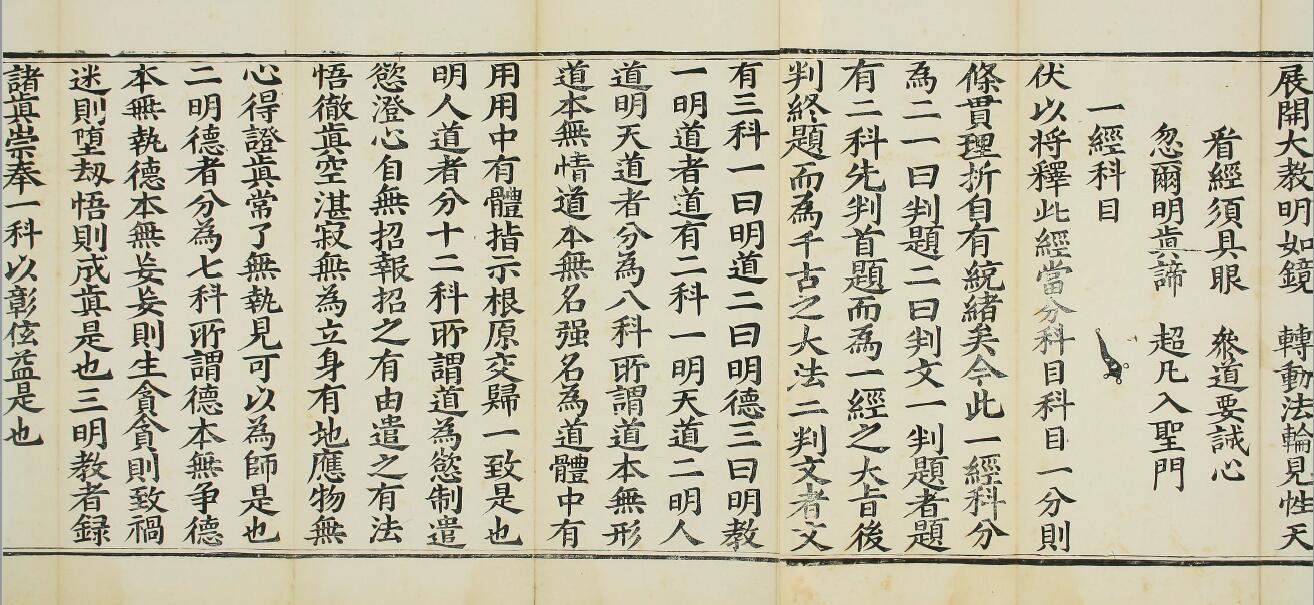 展開大教明如鏡　轉動法輪見性天
看經須具眼　衆道要誠心
忽爾明眞諦　超凡入聖門
一經科目
伏以将釋此經當分科目科目一分則
條貫理折自有統緒矣今此一經科分
為二一曰判題二曰判文一判題者題
有二科先判首題而為一經之大旨後
判終題而為千古之大法二判文者文
有三科一曰明道二曰明德三曰明教
一明道者道有二科一明天道二明人
道明天道者分為八科所謂道本無形
道本無情道本無名强名為道體中有
用用中有體指示根原交歸一致是也
明人道者分十二科所謂道為慾制遣
慾澄心自無招報招之有由遣之有法
悟徹眞空湛寂無為立身有地應物無
心得證眞常了無執見可以為師是也
二明德者分為七科所謂德本無争德
本無執德本無妄妄則生貪貪則致禍
迷則墮刼悟則成眞是也三明教者録
諸眞崇奉一科以彰佐益是也